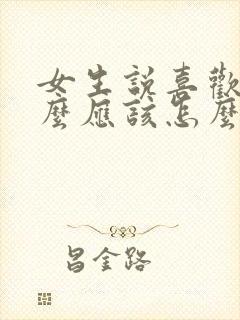 女生説喜歡
麼應該怎麼
昌金路